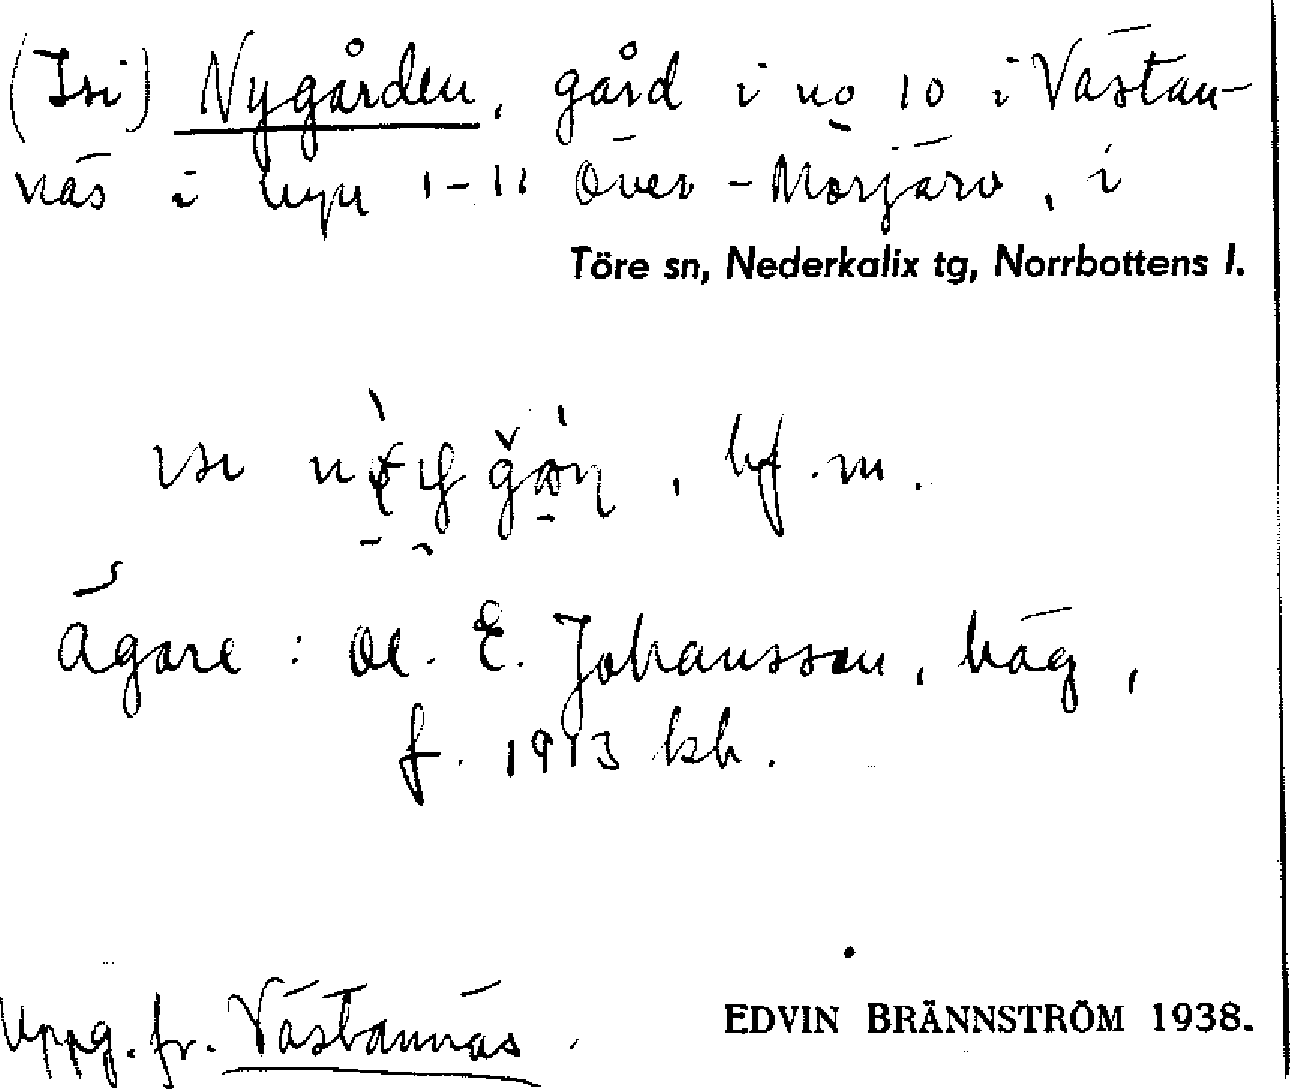 (Isi) Nygården, gård i no 10 i Västan-
näs i byn 1-11 Över-Morjärv, i
Töre sn, Nederkalix tg, Norrbottens l.
bf. m.
Ägare: Ol. E. Johansson, häg,
f. 1913 kh.
Uppg. fr. Västannäs.
EDVIN BRÄNNSTRÖM 1938.